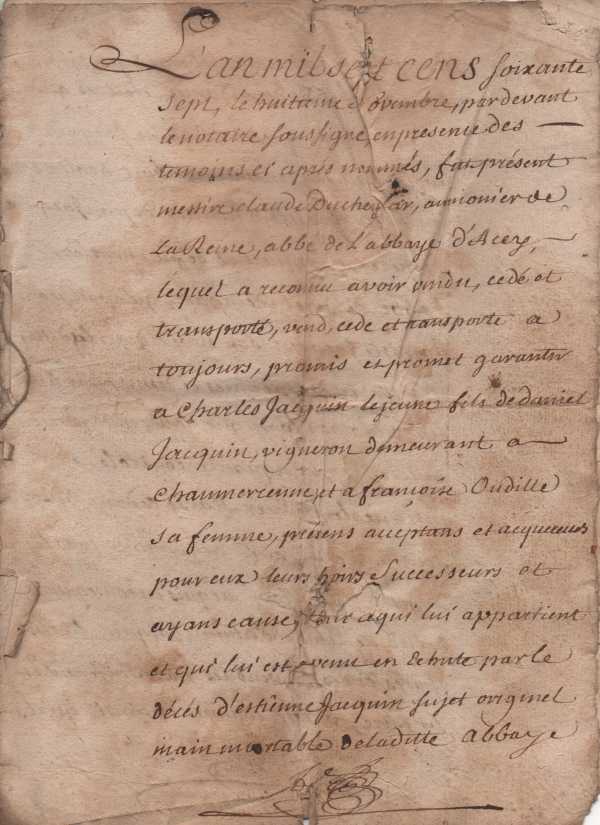 L'an mil sept cens soixante
sept, le huitieme novembre, pardevant
le notaire soussigné en presence des
temoins ci après nommés, fut présent
messire claude Ducheylar, aumonier de
La Reine, abbé de l'abbaye d'Acey,
lequel a reconnu avoir vendu, cedé et
transporté, vend, cede et transporte a
toujours, promis et promet garantir
a Charles Jacquin lejeune fils de daniel
Jacquin, vigneron demeurant a
Chaumercenne, et a françoise Oudille
sa femme, présens acceptans et acquereurs
pour eux leurs hoirs Successeurs et
ayans cause, tout a qui lui appartient
et qui lui est avenu en Echute par le
décés d'estienne Jacquin sujet originel
main mortable de laditte Abbaye